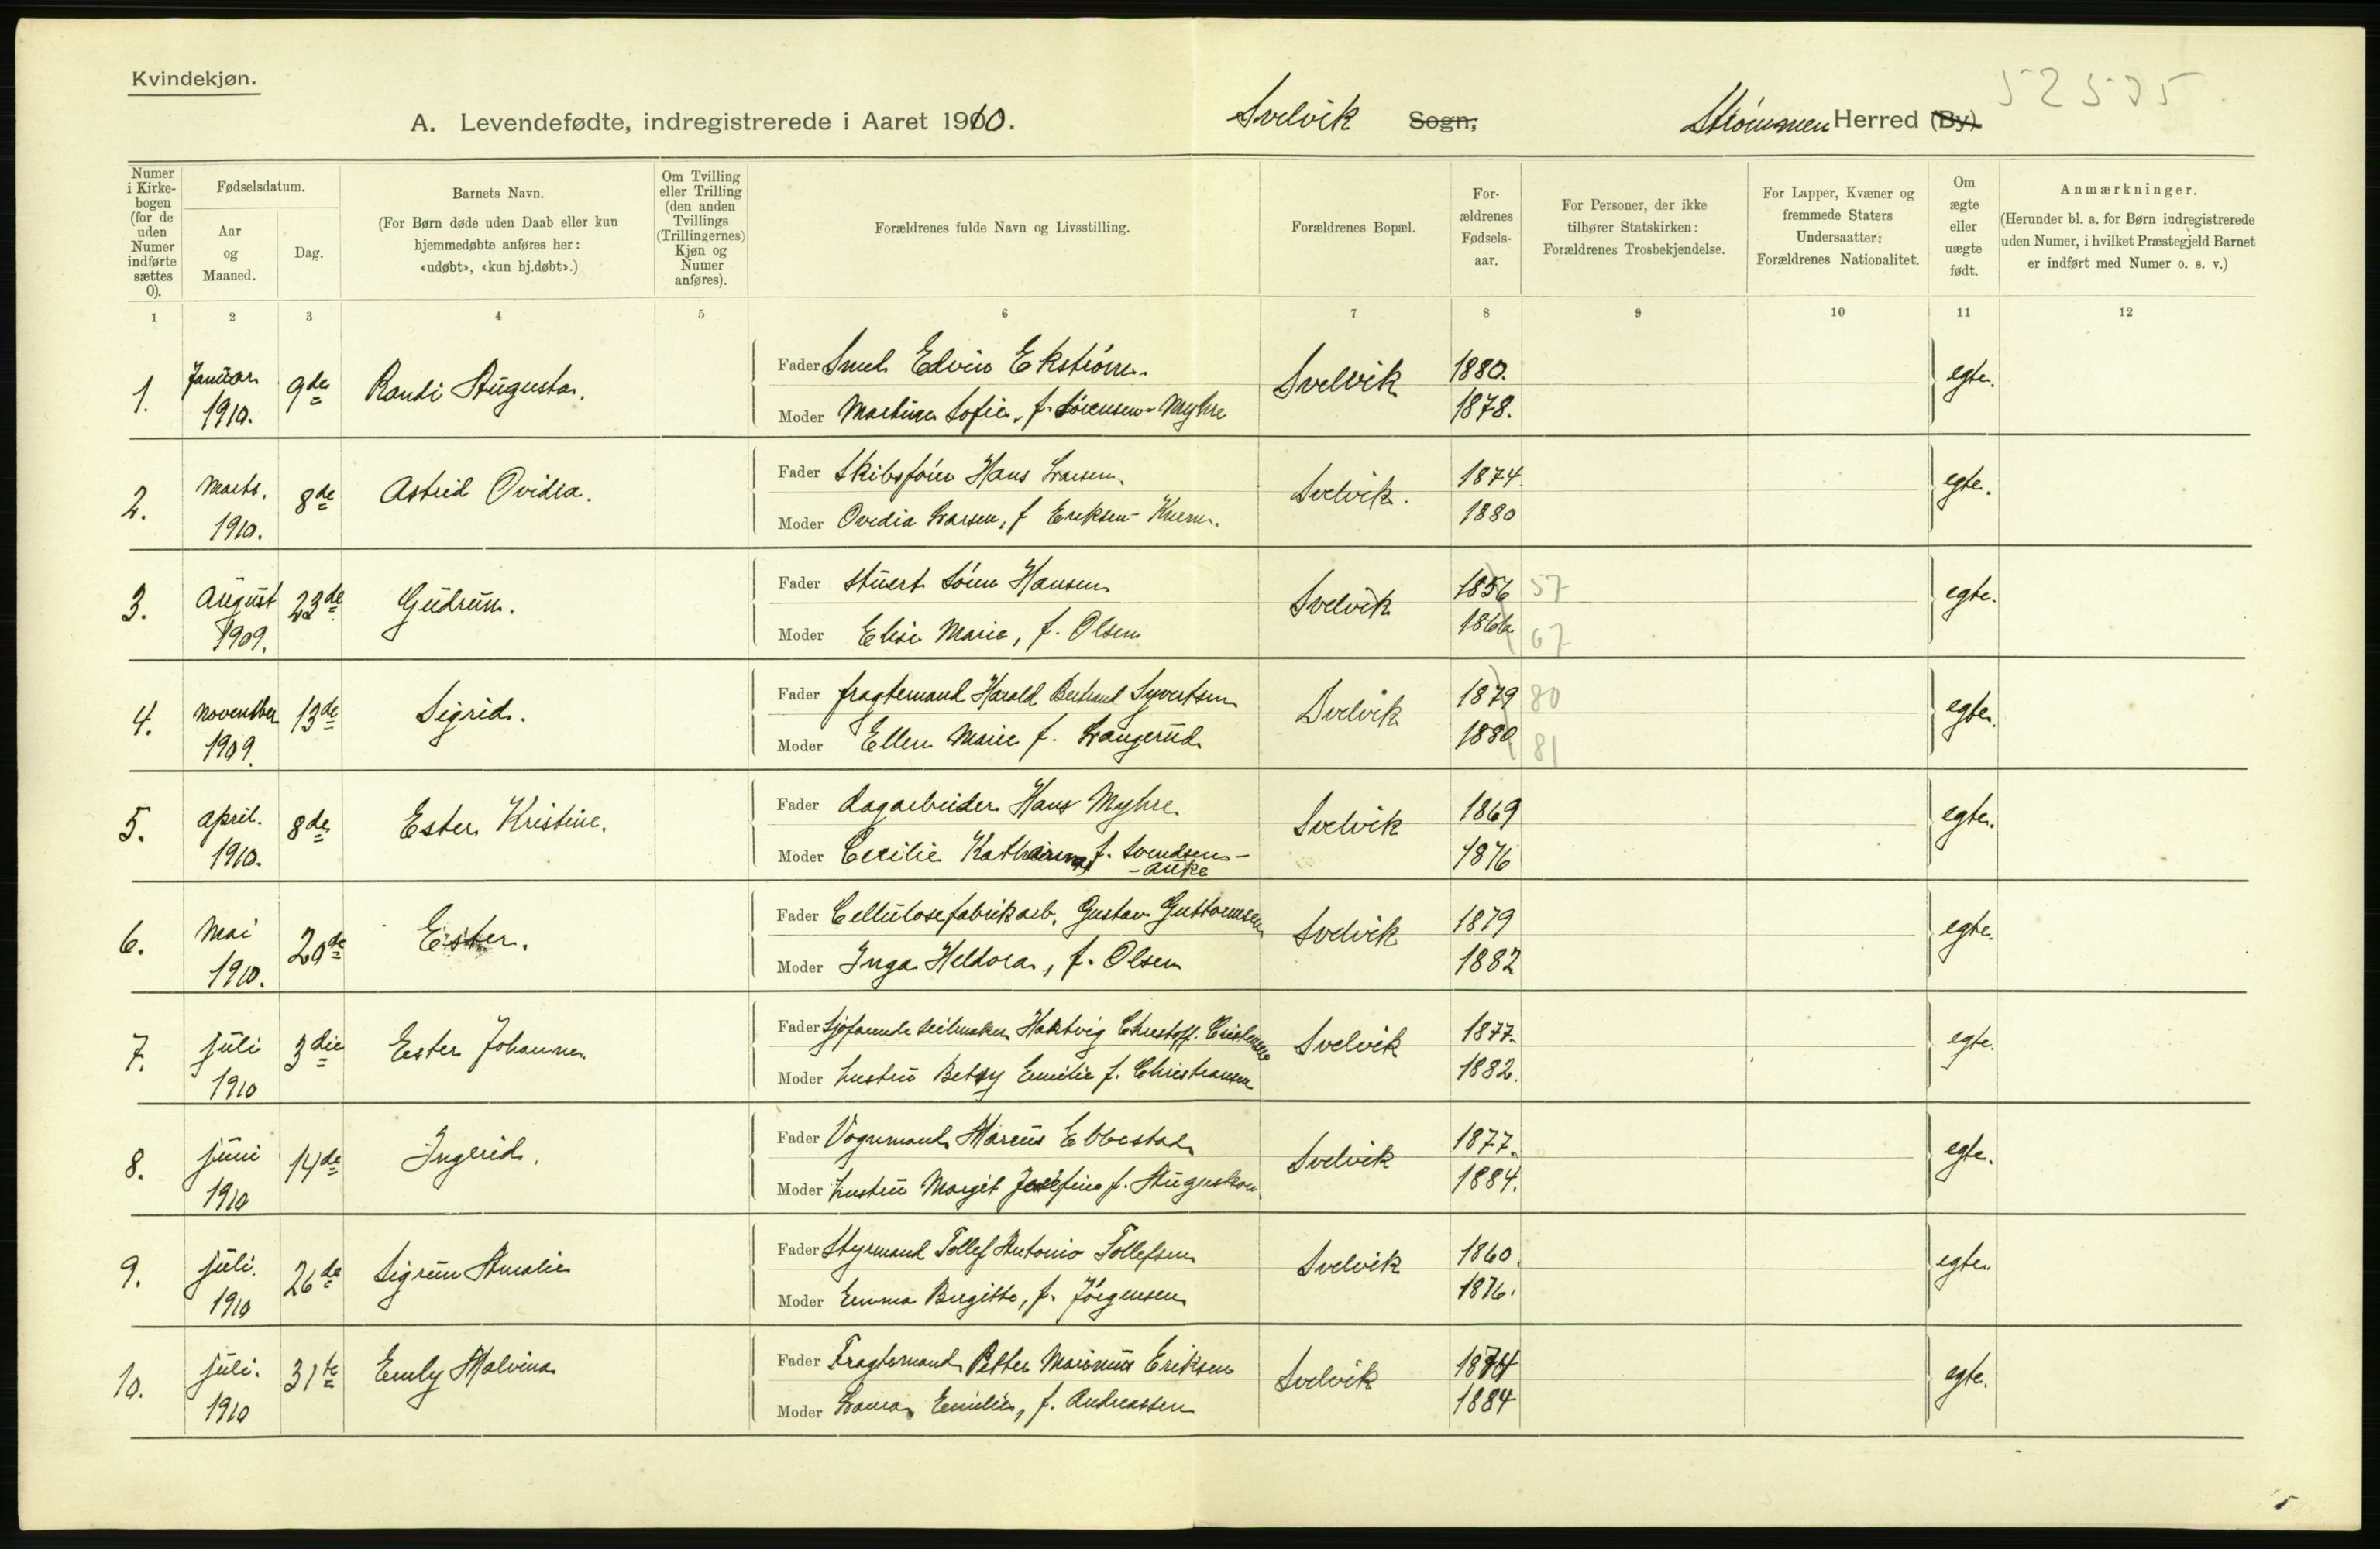 Kvindekjøn.
52535
A. Levendefødte, indregistrerede i Aaret 1910. Svelvik Sogn, Strømmen Herred (By)
Numer i Kirke-bogen (for de uden Numer indførte sættes 0).
Fødselsdatum.
Aar og Maaned.
Dag.
Barnets Navn.
(For Børn døde uden Daab eller kun hjemmedøbte anføres her: «udøbt», «kun hj.døbt».)
Om Tvilling eller Trilling (den anden Tvillings (Trillingernes) Kjøn og Numer anføres).
Forældrenes fulde Navn og Livsstilling.
Forældrenes Bopæl.
For-ældrenes Fødsels-aar.
For Personer, der ikke tilhører Statskirken: Forældrenes Trosbekjendelse.
For Lapper, Kvæner og fremmede Staters Undersaatter: Forældrenes Nationalitet.
Om ægte eller uægte født.
Anmærkninger.
(Herunder bl. a. for Børn indregistrerede uden Numer, i hvilket Præstegjeld Barnet er indført med Numer o. s. v.)
1 2 3 4 5 6 7 8 9 10 11 12
1. Januar 1910. 9de Randi Augusta. Fader Smed Edvin Ekstrøm. Svelvik 1880. egte.
Moder Martine Sofie, f. Sørensen-Myhre 1878.
2. Marts. 1910. 8de Astrid Ovidia. Fader Skibsfører Hans Larsen. Svelvik. 1874 egte.
Moder Ovidia Larsen, f Eriksen- 1880
3. August 1909. 23de Gudrun. Fader Stuert Sören Hansen Svelvik 1856 57 egte.
Moder Elise Marie, f. Olsen 1866 67
4. November 1909. 13de Sigrid. Fader fragtemand Harald Bertrand Syvertsen Svelvik 1879 80 egte.
Moder Ellen Marie f. Langerud 1880 81
5. April. 1910. 8de Ester Kristine. Fader dagarbeider Hans Myhre Svelvik 1869 egte.
Moder Cecilie Katharina f. Svendsen-
-Auke 1876
6. Mai 1910. 20de Ester. Fader Cellulosefabrikarb. Gustav Guttormsen Svelvik 1879 egte.
Moder Inga Heldora, f. Olsen 1882
7. juli 1910 3die Ester Johanne Fader Sjøfarende seilmaker Hartvig Christoff. Svelvik 1877. egte.
Moder hustru Betsy Emilie f. Christiansen 1882.
8. juni 1910 14de Ingerid. Fader Vognmand Marius Ebbestad Svelvik 1877. egte.
Moder hustru Margit Josefine f. Augustson 1884.
9. juli. 1910 26de Sigrun Amalie Fader Styrmand Tollef Antonio Tollefsen Svelvik 1860. egte.
Moder Emma Birgitte, f. Jörgensen 1876.
10. juli. 1910 31te Emly Malvina Fader Fragtemand Petter Marinius Eriksen Svelvik 1874 egte.
Moder Laura Emilie, f. Andreassen 1884
5